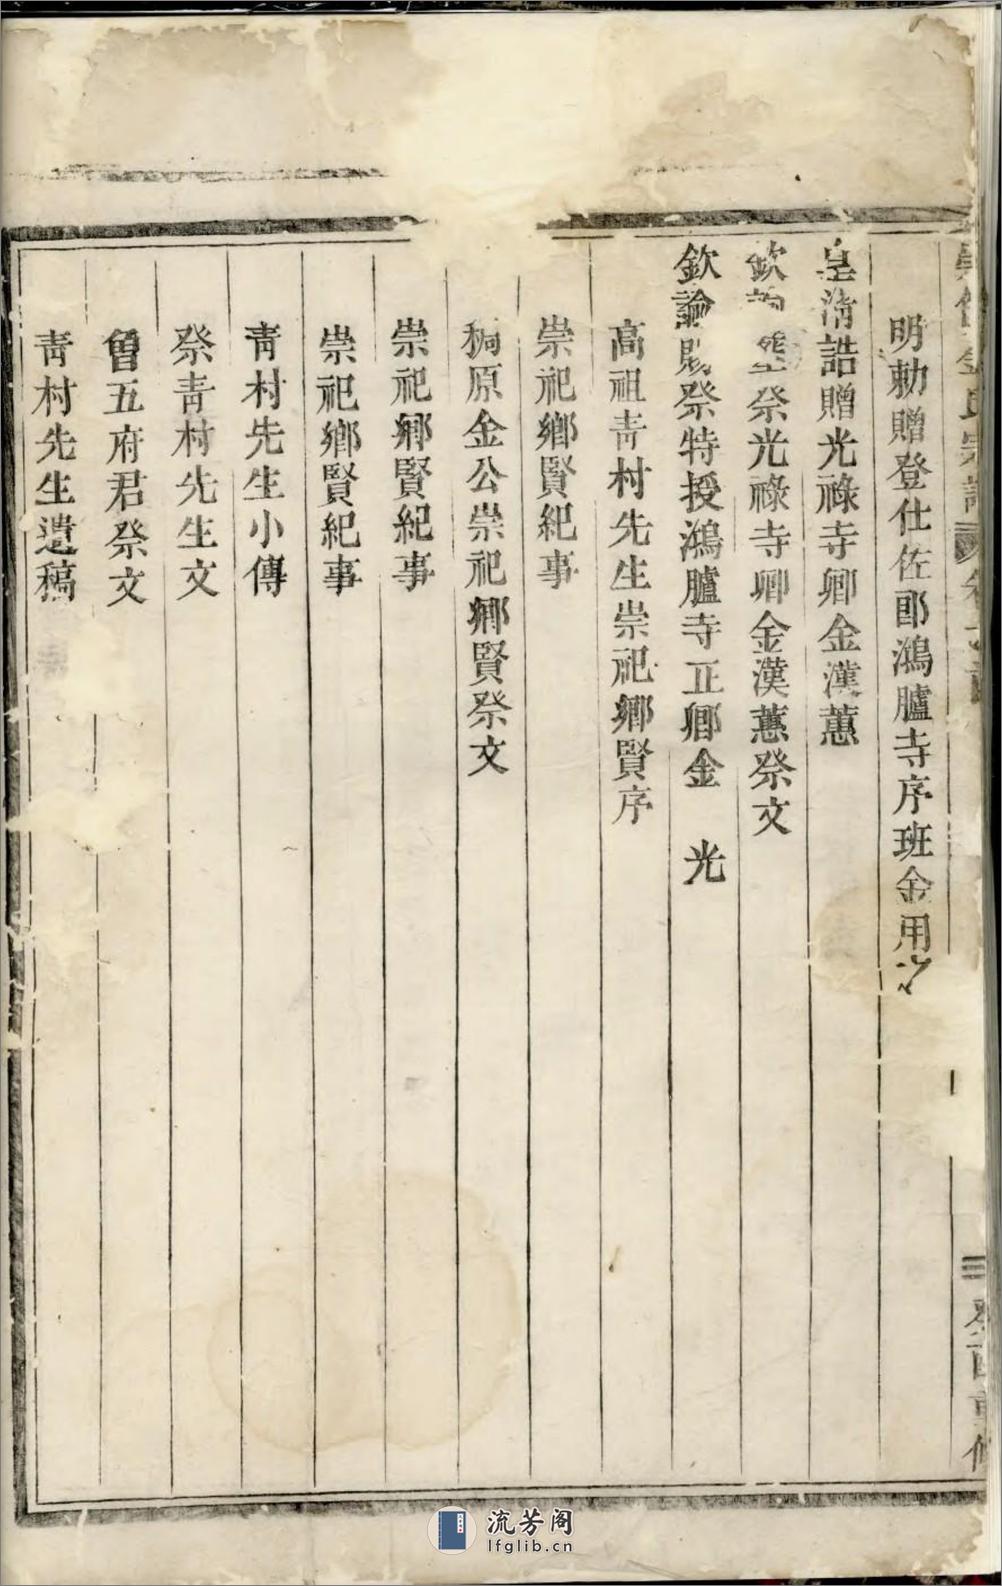 金氏宗譜 卷
癸酉重修
明勅贈登仕佐郎鴻臚寺序班金用
皇淸誥贈光祿寺卿金漢蕙
欽 祭光祿寺卿金漢蕙祭文
欽諭賜祭特授鴻臚寺正卿金 光
高祖靑村先生崇祀鄉賢序
崇祀鄉賢紀事
桐原金公崇祀鄉賢祭文
崇祀鄉賢紀事
崇祀鄉賢紀事
靑村先生小傳
祭靑村先生文
曾五府君祭文
靑村先生遺稿
流芳阁
lfglib.cn